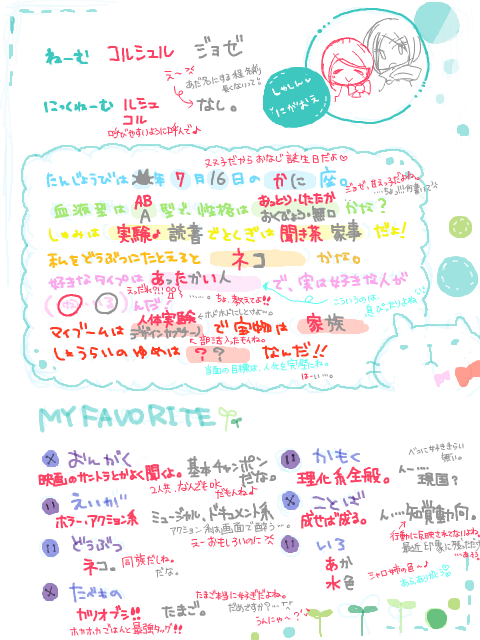 ねーむ コルシュル ジョゼ
え〜 あだ名にする程名前長くないって
にっくねーむ ルシュ コル なし。
呼びやすいように呼んで♪
しゅしん にがおえ
ヌヌ子だからおなじ誕生日だよ♡
たんじょうびは 年 7月16日の かに 座。
ジョゼ、甘えっ子だよね。
血液型は AB A 型で、性格は あっとり・したたか おくびょう・無口 かな?
しゅみは 実験♪ 読書 でとくぎは 聞き茶 家事 だよ!
私をどうぶつにたとえると ネコ かな。
好きなタイプは あったかい人 で、実は好きな人が
えっだれ?!!
……。 ちょ、教えてよ!!
( いる ・ いない )んだ?
こういうのは、
マイブームは 人体実験 デザインカプチーノ で宝物は 家族
←ホドホドにしときなよー。
しょうらいのゆめは ? ? なんだ!!
当面の目標は、人化を完璧にね。
はーい…。
MY FAVORITE
おんがく
映画のサントラとかよく聞くよ。 基本チャンポンだな。
2人共、なんでもOKだもんね♪
えいが
ホラー・アクション系 ミュージカル、ドキュメント系
アクション系は画面で酔う…。
えーおもしろいのに
どうぶつ
ネコ。 同族だしね。だな。
たべもの
カツオブシ!! たまご。
たまご本当に好きだよね。
だめですか?…
うんにゃ〜?♪
ホカホカごはんと最強タッグ!!
かもく
理化系全般。 んー…。 現国?
べつに好ききらい無い。
ことば
成せば成る。 ん…知覚動向。
行動に反映されてなければね。
最近印象に残っただけ
…ある。
いろ
あか
水色
シャロ姉の色〜♪